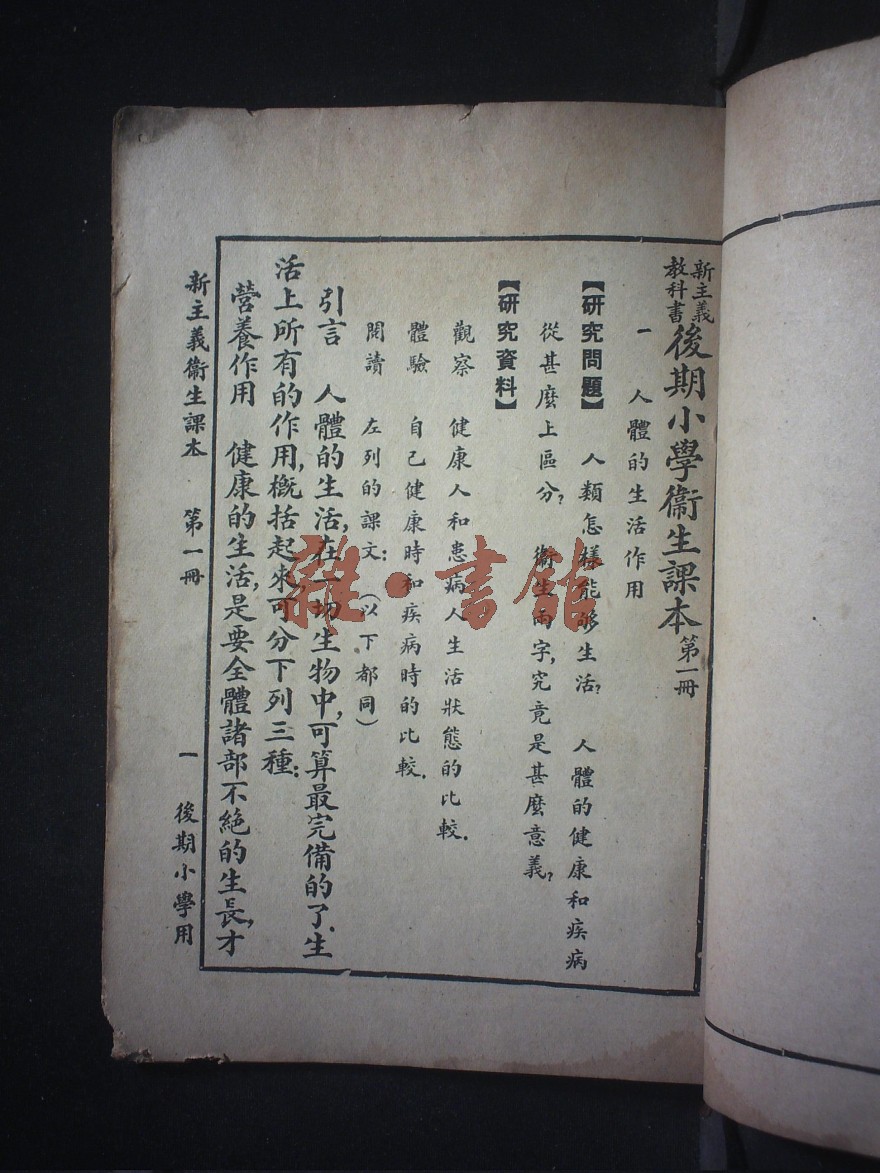 新主義教科書 後期小學衞生課本 第一冊
一 人體的生活作用
【研究問題】 人類怎樣能够生活? 人體的健康和疾病
從甚麼上區分? 衞生兩字,究竟是甚麼意義?
【研究資料】
觀察 健康人和患病人生活狀態的比較.
體驗 自己健康時和疾病時的比較.
閱讀 左列的課文:(以下都同)
引言 人體的生活,在一切生物中,可算最完備的了.生
活上所有的作用,概括起來,可分下列三種:
營養作用 健康的生活,是要全體諸部不絶的生長,才
新主義衞生課本 第一冊 一 後期小學用
雜·書館